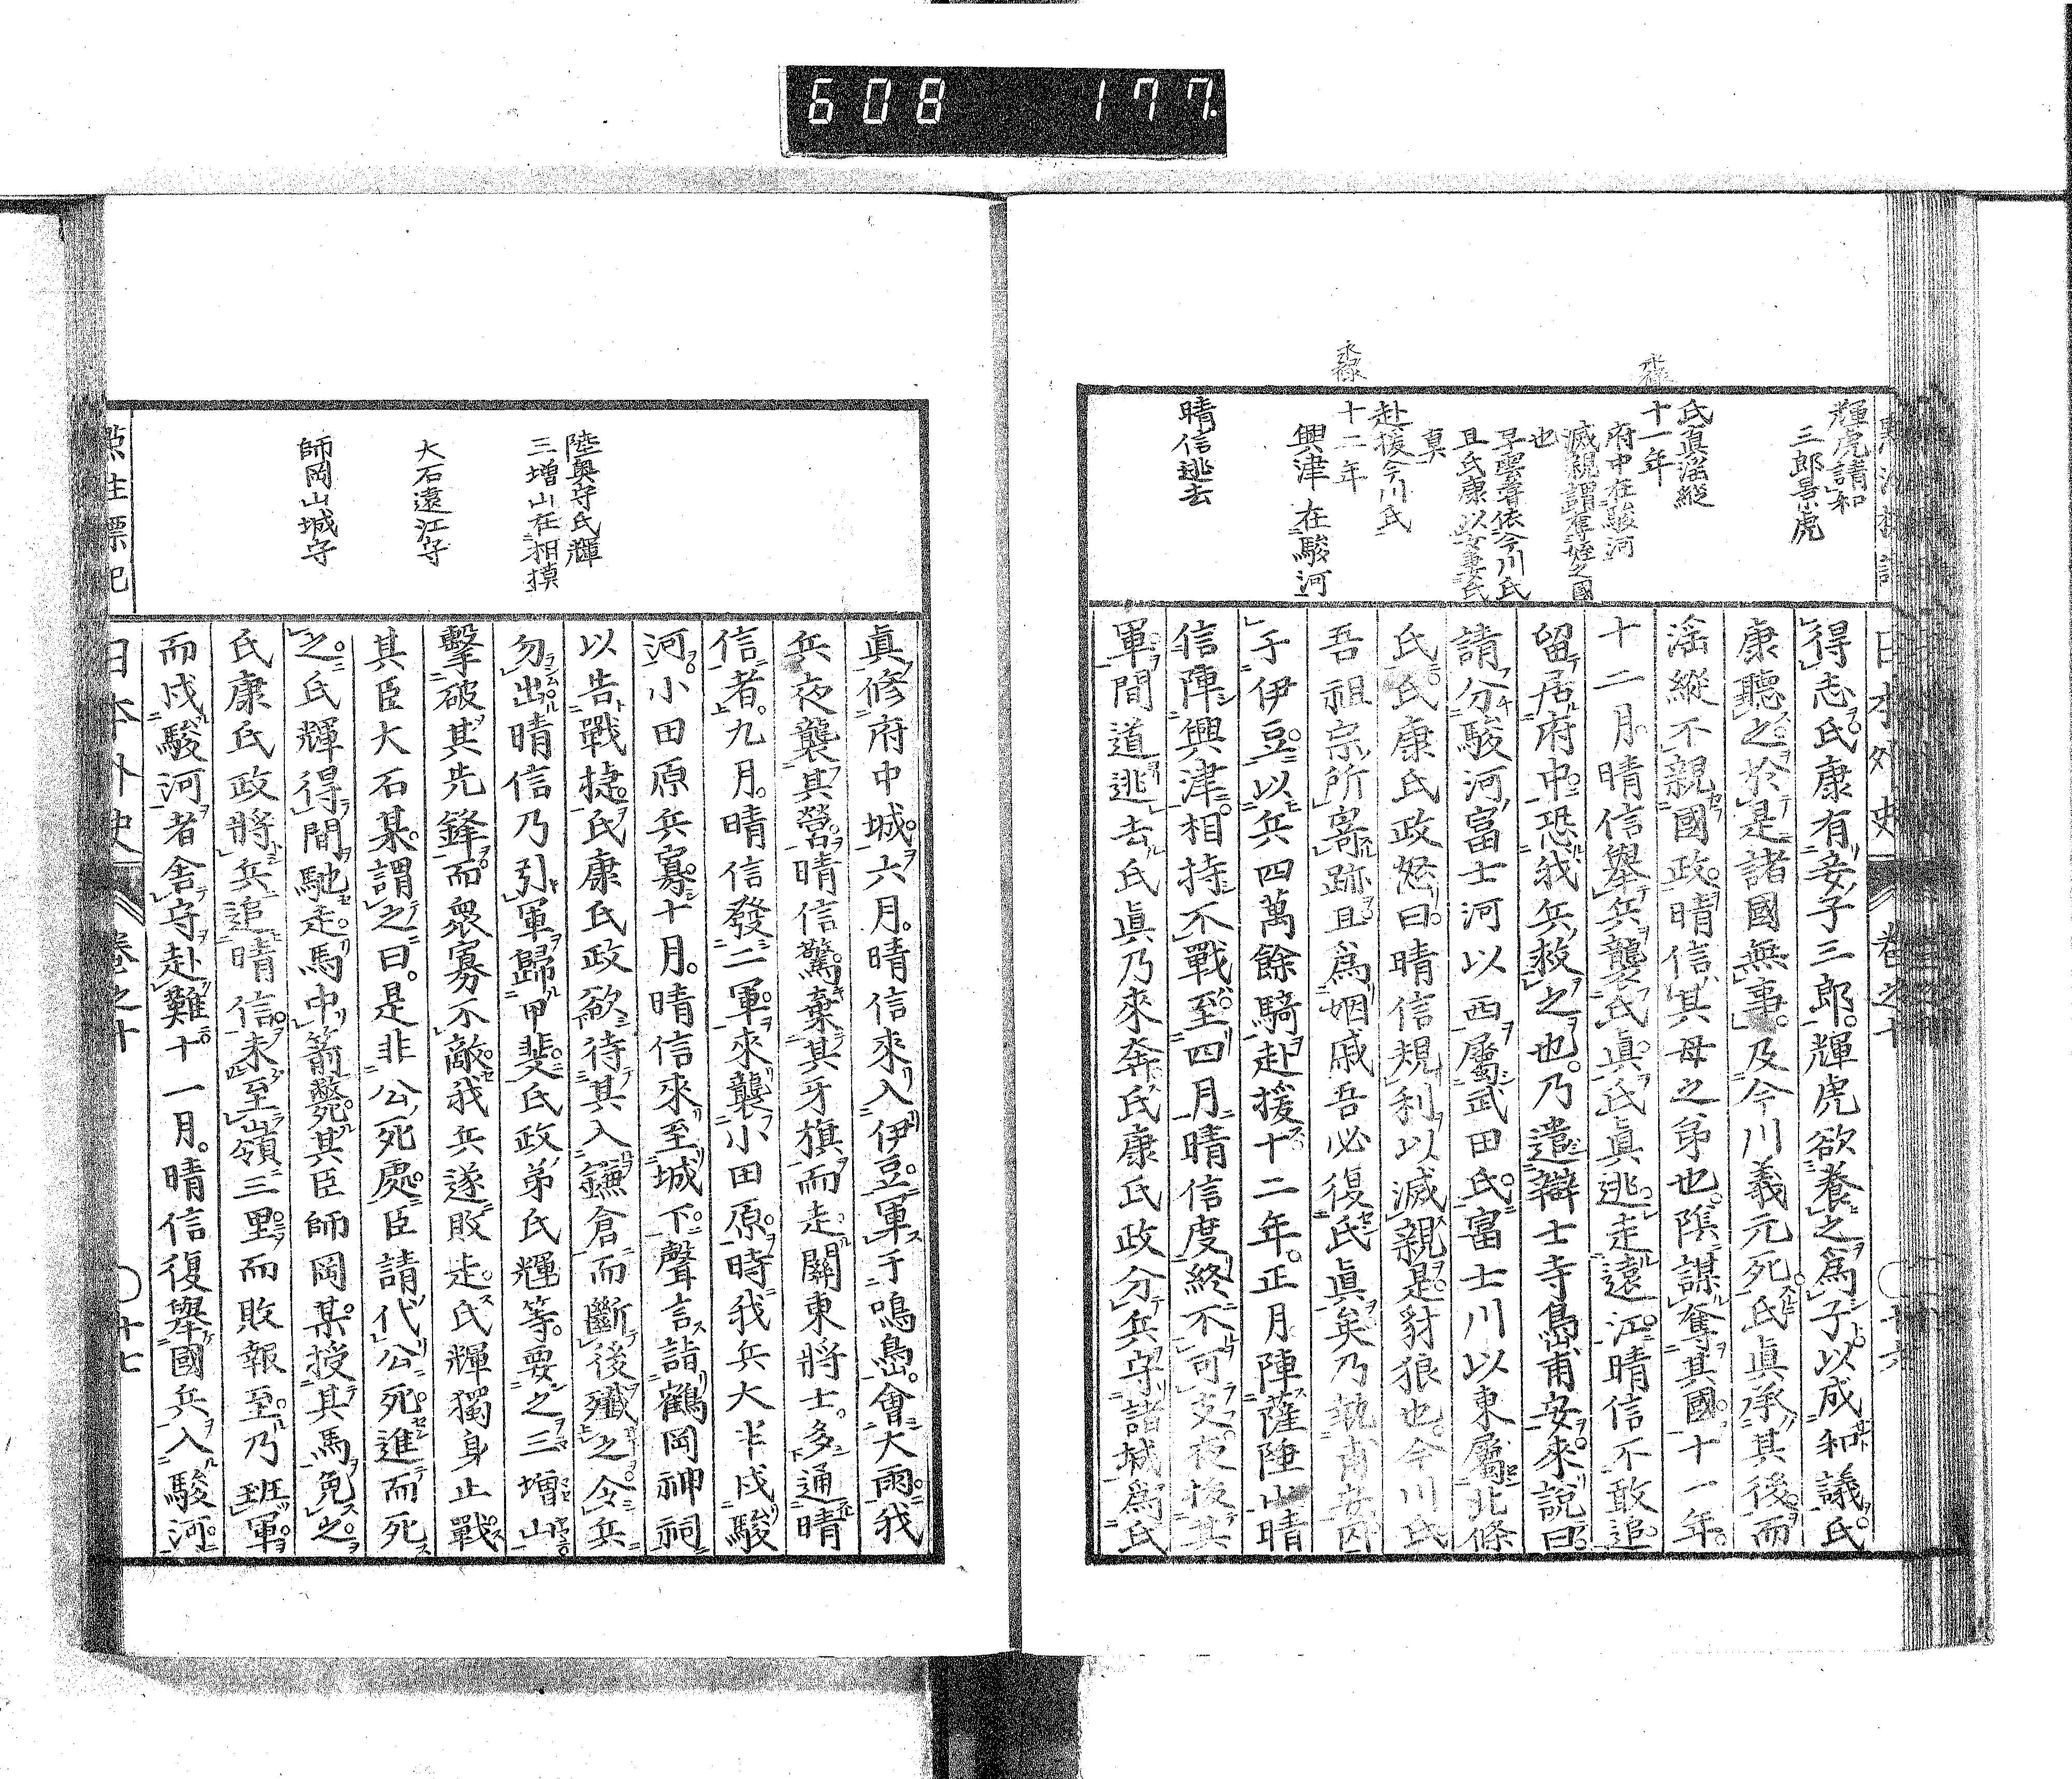 608 177.
永祿
永祿
輝虎請和
三郎景虎
氏眞滛縱
十一年
府中在駿河
滅親謂奪姪之國
也
早雲甞依今川氏
且氏康以女妻氏
眞
赴援今川氏
十二年
興津在駿河
晴信逃去
日本外史 卷之十 〇廿六
得志氏康有妾子三郎。輝虎欲養之爲子以成和議。氏
康聽之於是諸國無事。及今川義元死。氏眞承其後而
滛縱不親國政。晴信其母之弟也。陰謀奪其國。十一年。
十二月。晴信舉兵襲氏眞。氏眞逃走遠江。晴信不敢追
留居府中。恐我兵救之也。乃遣辯士寺島甫安來說曰。
請分駿河富士河以西屬武田氏。富士川以東屬北條
氏。氏康氏政怒曰。晴信規利以滅親。是豺狼也。今川氏
吾祖宗所寄跡且爲姻戚吾必復氏眞矣乃執甫安囚
于伊豆。以兵四萬餘騎赴援十二年。正月陣薩陲山晴
信陣興津。相持不戰。至四月晴信度終不可支夜拔其
軍間道逃去氏眞乃來奔氏康氏政分兵守諸城爲氏
眞修府中城。六月。晴信來入伊豆。軍于鳴島。會大雨。我
兵夜襲其營。晴信驚棄其牙旗而走。關東將士。多通晴
信者。九月。晴信發二軍。來襲小田原。時我兵大半戍駿
河。小田原兵寡。十月。晴信來至城下。聲言詣鶴岡神祠
以告戰捷。氏康氏政欲待其入鎌倉而斷後殲之令兵
勿出晴信乃引軍歸甲斐。氏政弟氏輝等。要之三增山
擊破其先鋒。而衆寡不敵。我兵遂敗走。氏輝獨身止戰。
其臣大石某。謂之曰。是非公死處。臣請代公死進而死
之。氏輝得間馳走。馬中箭斃。其臣師岡某。授其馬免之。
氏康氏政將兵追晴信。未至嶺三里。而敗報至。乃班軍。
而戍駿河者舍守赴難。十一月。晴信復舉國兵入駿河
日本外史 卷之十 〇廿七
陸奧守氏輝
三增山在相摸
大石遠江守
師岡山城守